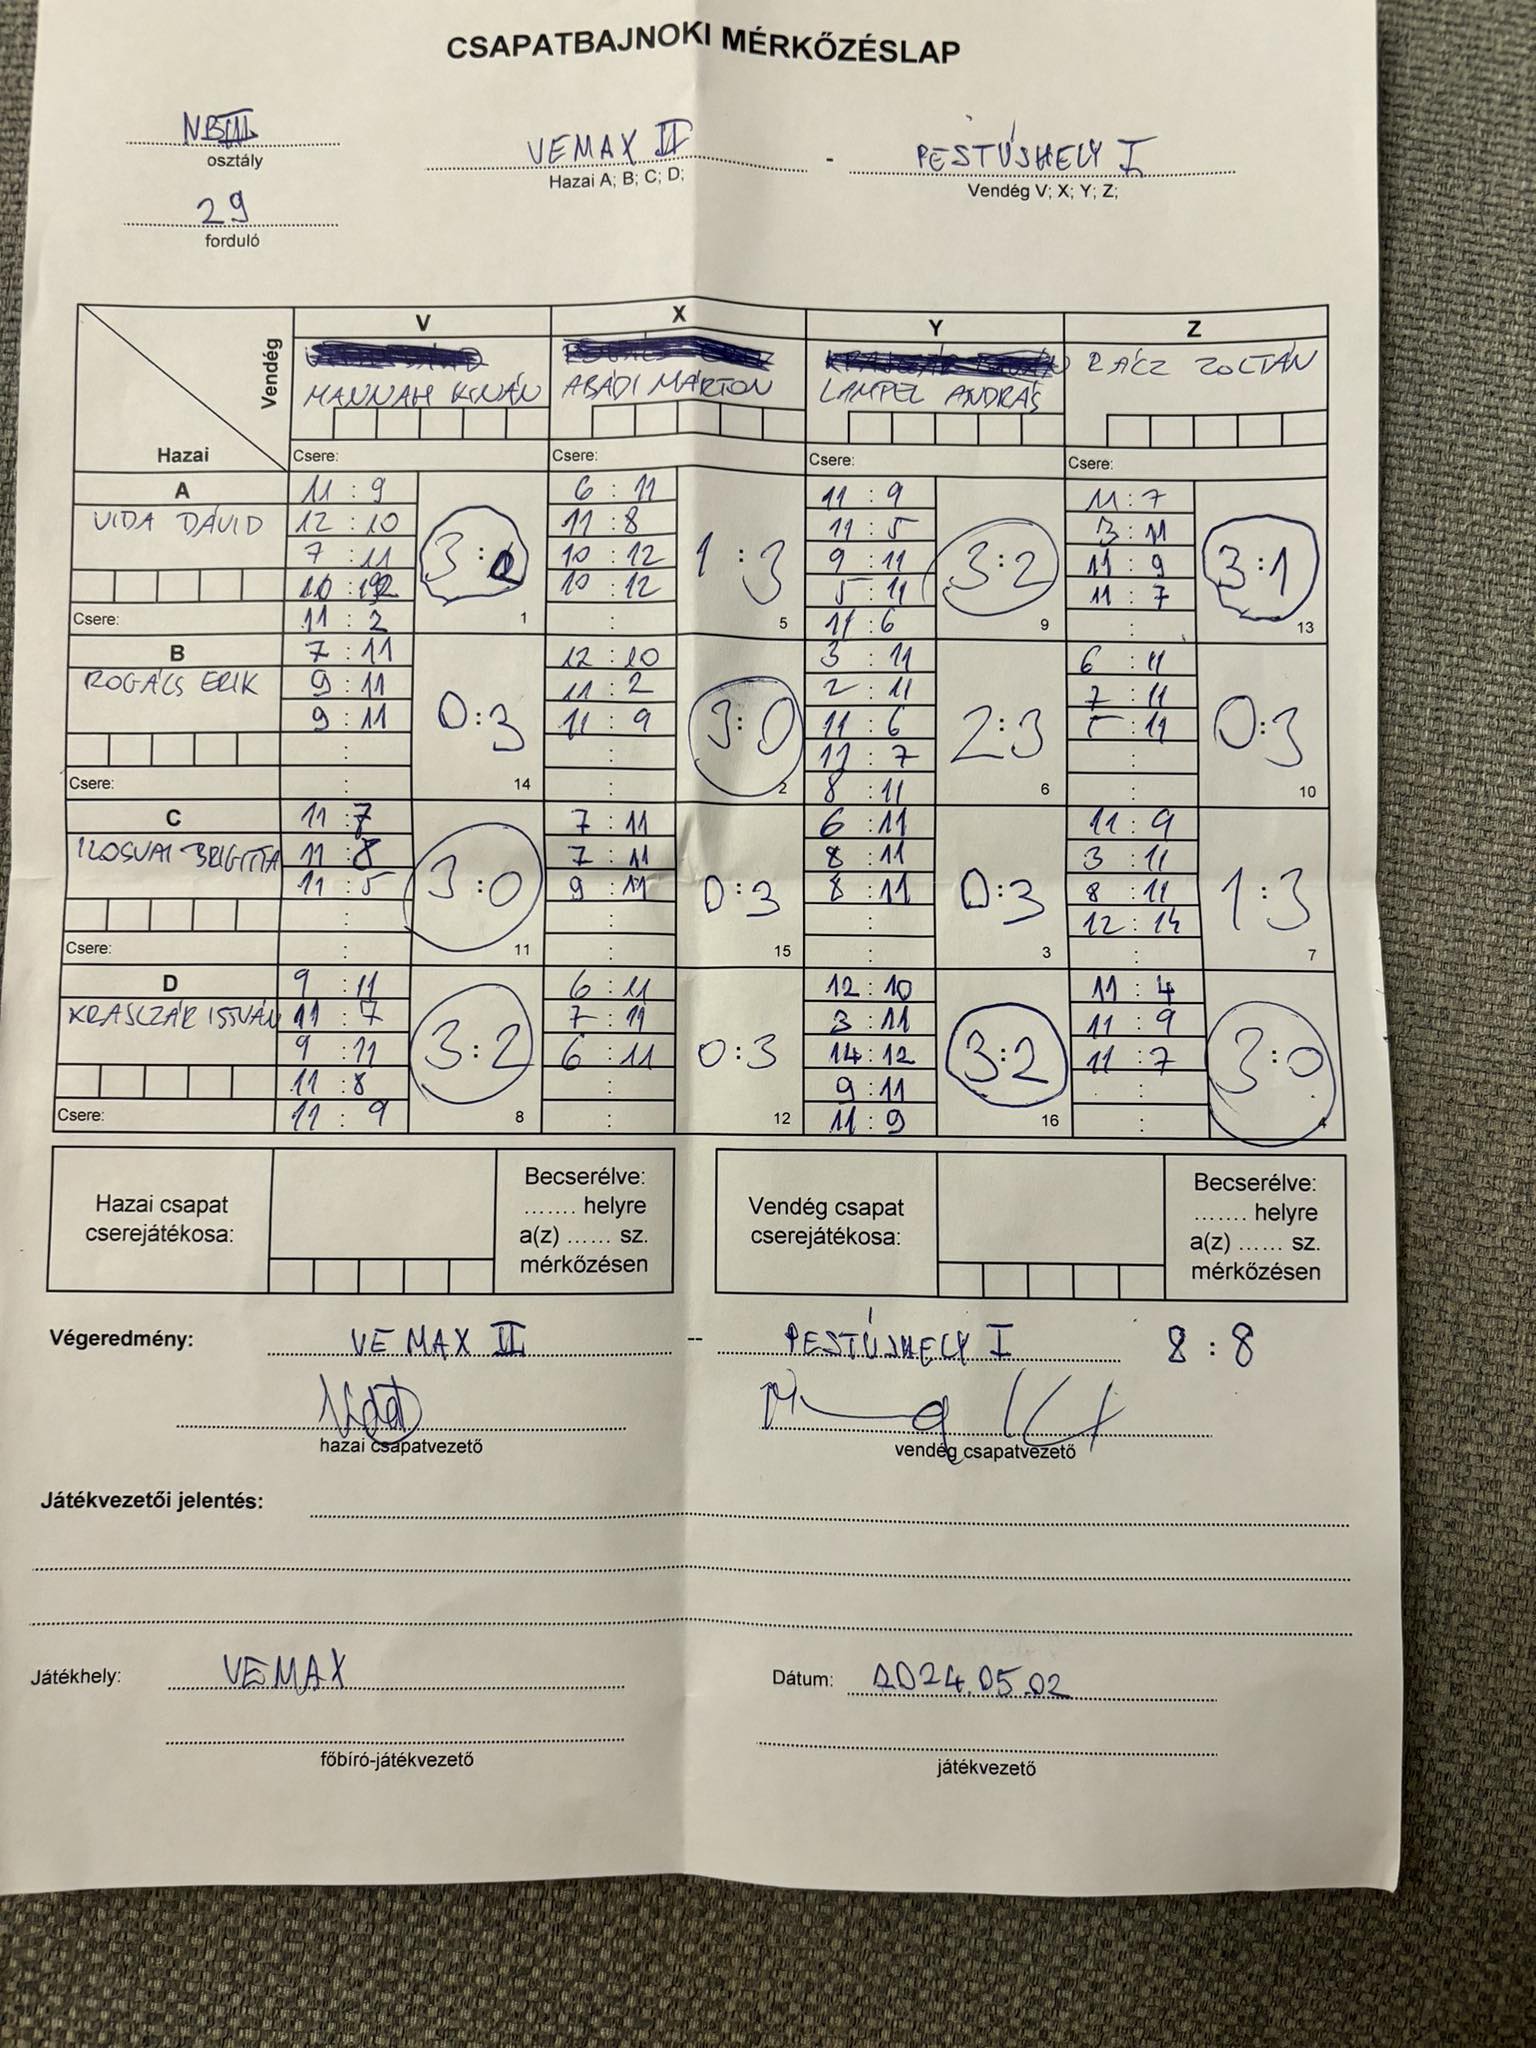 CSAPATBAJNOKI MÉRKŐZÉSLAP
NBIII
osztály
VEMAX II - PESTÚJHELY I
Hazai A; B; C; D;
Vendég V; X; Y; Z;
29
forduló
Vendég
Hazai
V
MANNAH KINÁN
Csere:
X
ABÁDI MÁRTON
Csere:
Y
LAMPEL ANDRÁS
Csere:
Z
RÁCZ ZOLTÁN
Csere:
A
VIDA DÁVID
Csere:
11 : 9
12 : 10
7 : 11
10 : 12
11 : 2
3 : 2
1
6 : 11
11 : 8
10 : 12
10 : 12
:
1 : 3
5
11 : 9
11 : 5
9 : 11
5 : 11
11 : 6
3 : 2
9
11 : 7
3 : 11
11 : 9
11 : 7
:
3 : 1
13
B
ROGÁCS ERIK
Csere:
7 : 11
9 : 11
9 : 11
:
:
0 : 3
14
12 : 10
11 : 2
11 : 9
:
:
3 : 0
2
3 : 11
2 : 11
11 : 6
: 7
8 : 11
2 : 3
6
6 : 11
7 : 11
5 : 11
:
:
0 : 3
10
C
ILOSVAI BRIGITTA
Csere:
11 : 7
11 : 8
11 : 5
:
:
3 : 0
11
7 : 11
7 : 11
9 : 11
:
:
0 : 3
15
6 : 11
8 : 11
8 : 11
:
:
0 : 3
3
11 : 9
3 : 11
8 : 11
12 : 14
:
1 : 3
7
D
KRASCZÁR ISTVÁN
Csere:
9 : 11
11 : 7
9 : 11
11 : 8
11 : 9
3 : 2
8
6 : 11
7 : 11
6 : 11
:
:
0 : 3
12
12 : 10
3 : 11
14 : 12
9 : 11
11 : 9
3 : 2
16
11 : 4
11 : 9
11 : 7
:
:
3 : 0
4
Hazai csapat
cserejátékosa:
Becserélve:
....... helyre
a(z) ...... sz.
mérkőzésen
Vendég csapat
cserejátékosa:
Becserélve:
....... helyre
a(z) ...... sz.
mérkőzésen
Végeredmény: VEMAX II -- PESTÚJHELY I 8 : 8
hazai csapatvezető
vendég csapatvezető
Játékvezetői jelentés:
Játékhely: VEMAX
Dátum: 2024.05.02
főbíró-játékvezető
játékvezető